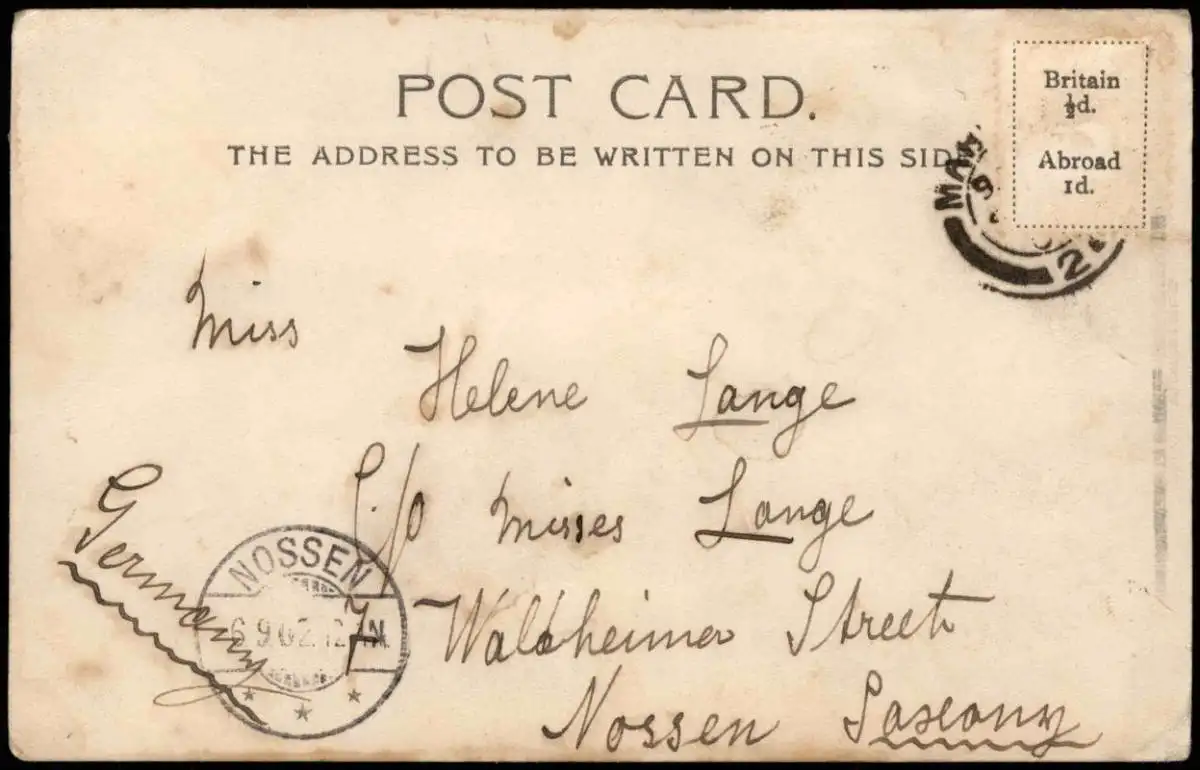 POST CARD.
THE ADDRESS TO BE WRITTEN ON THIS SIDE
Britain
½d.
Abroad
1d.
MAN
9
2
Miss
Helene Lange
C/o Misses Lange
7 Waldheimer Street
Nossen Saxony
Germany
NOSSEN
6 9 02 12 N.